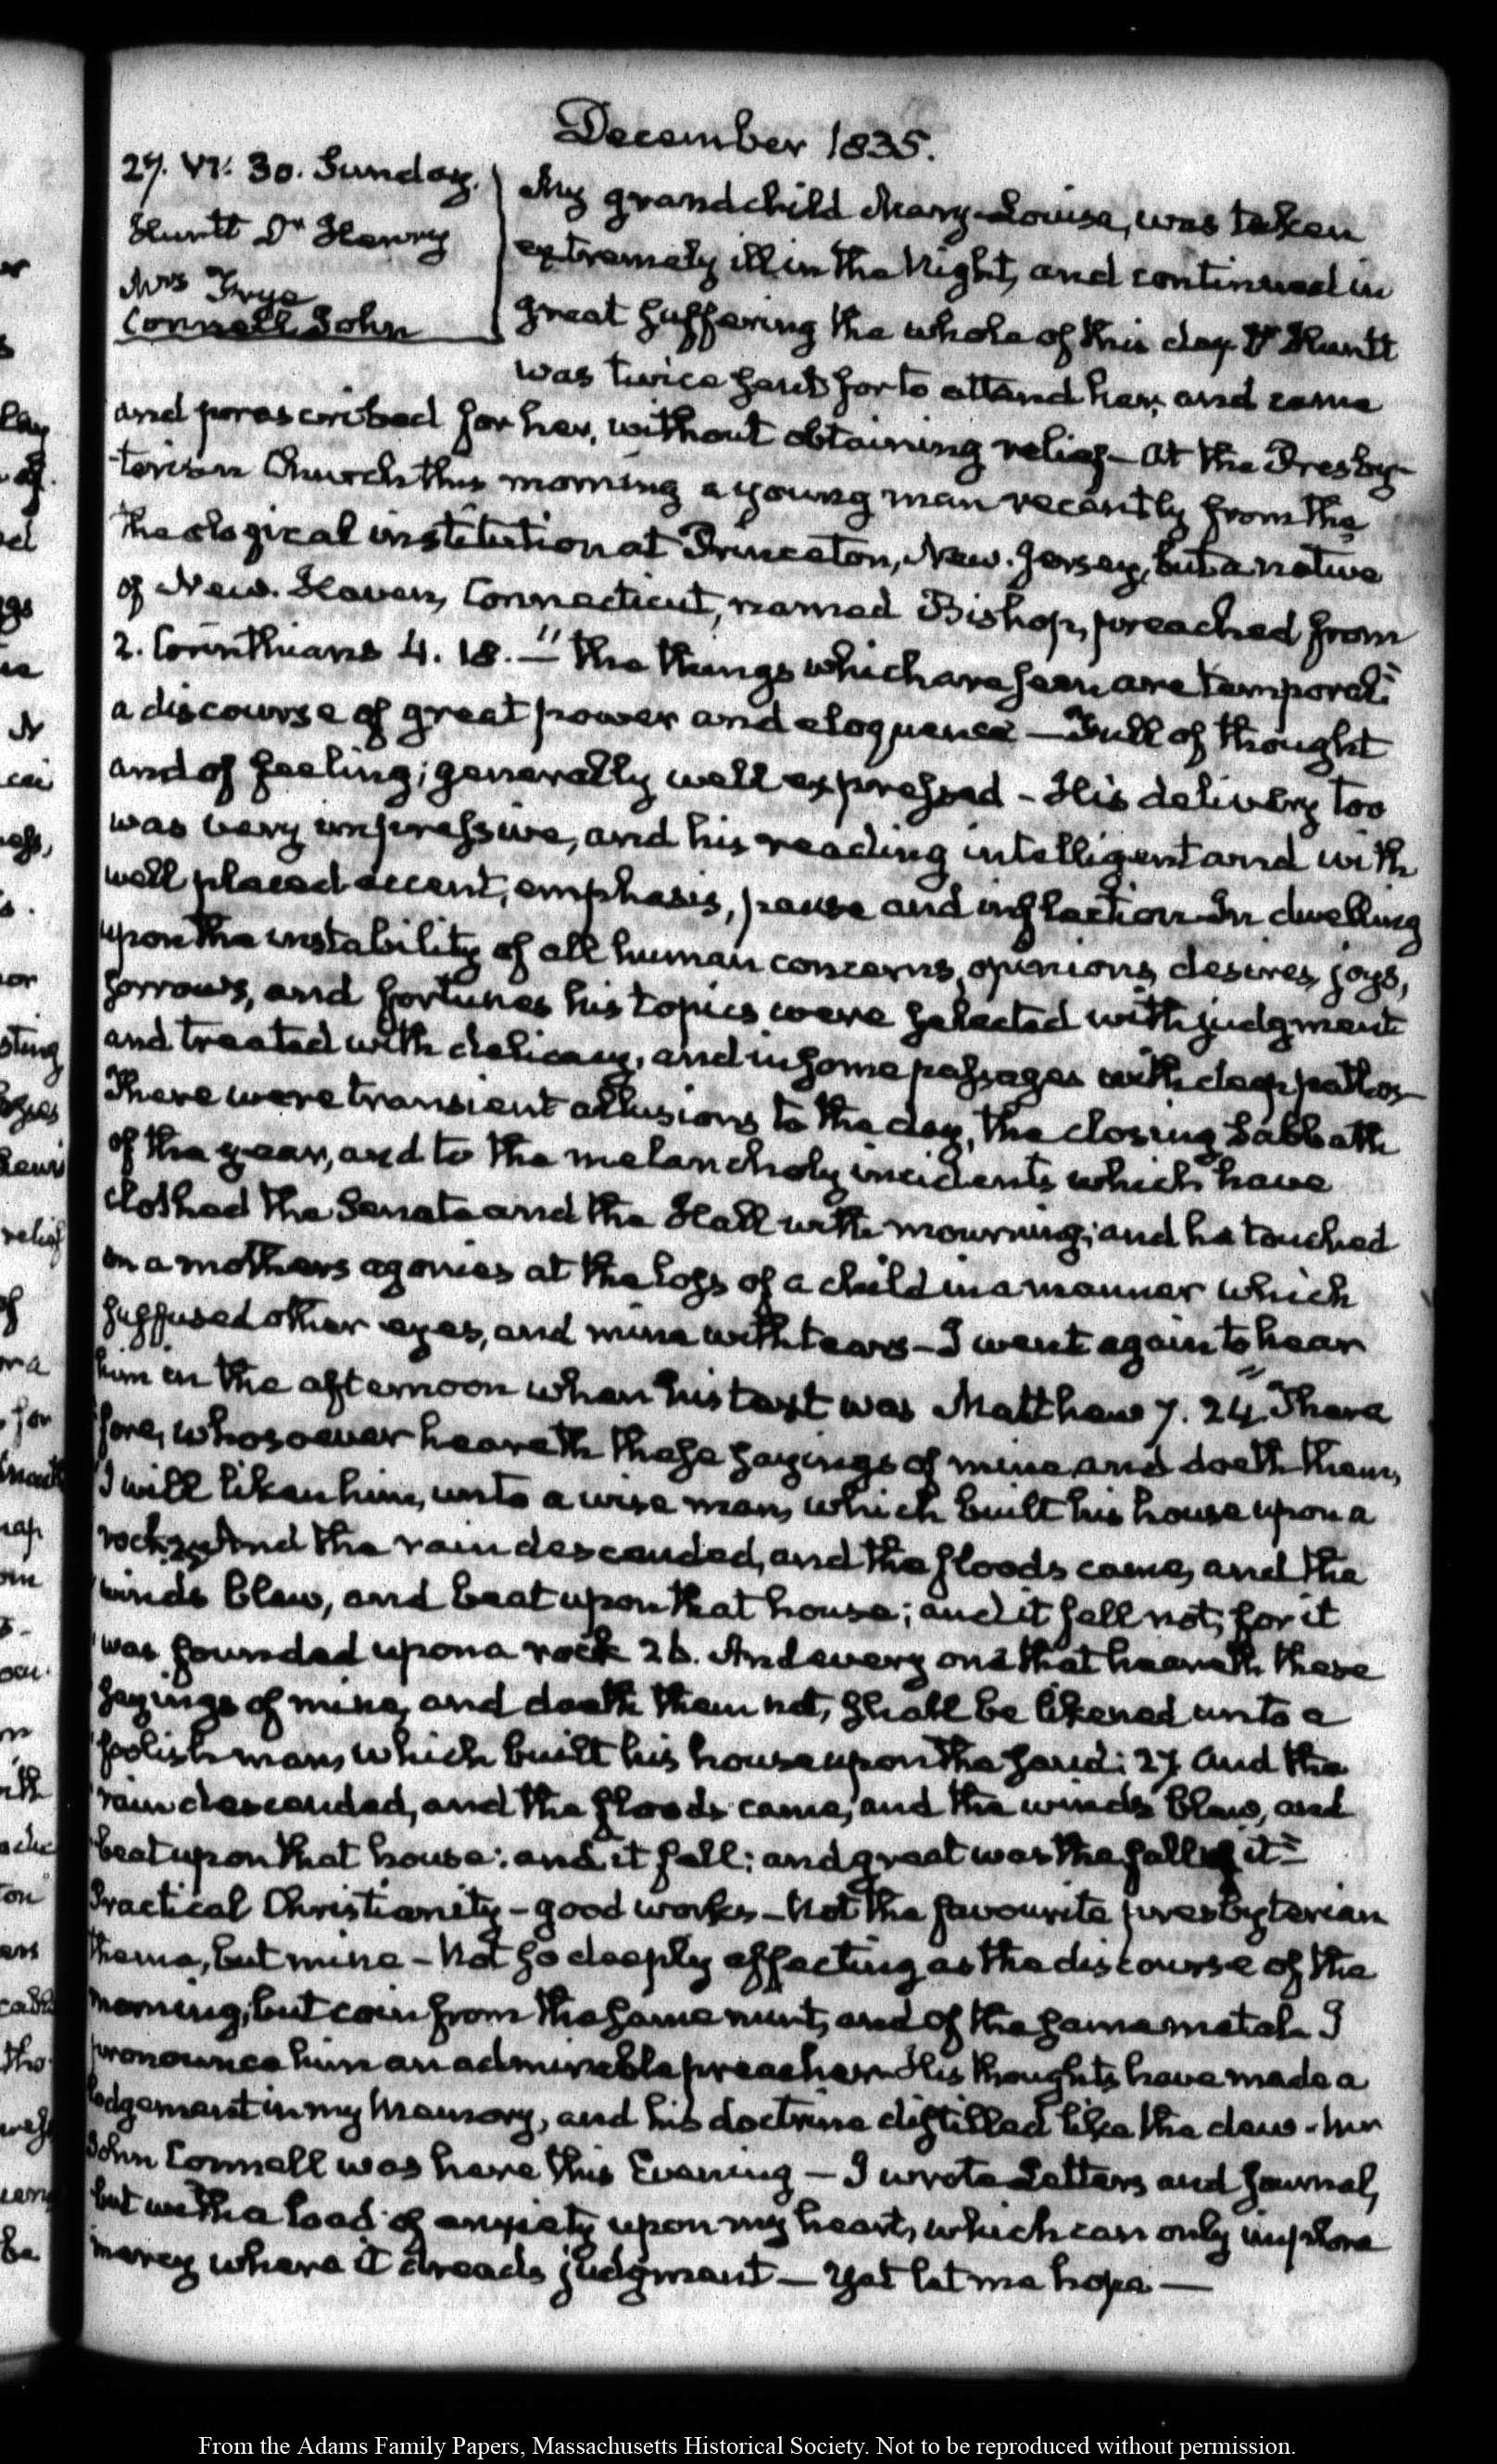 December 1835.
27. VI: 30. Sunday.
Huntt Dr Henry
Mrs Frye
Connell John
My grandchild Mary-Louisa, was taken
extremely ill in the Night, and continued in
great suffering the whole of this day Dr Huntt
was twice sent for to attend her, and came
and prescribed for her, without obtaining relief — At the Presby-
terian Church this morning a young man recently from the
theological institution at Princeton, New-Jersey, but a native
of New-Haven, Connecticut, named Bishop, preached from
2. Corinthians 4. 18. — "the things which are seen are temporal"
a discourse of great power and eloquence — Full of thought
and of feeling; generally well expressed — His delivery too
was very impressive, and his reading intelligent and with
well placed accent, emphasis, pause and inflection — In dwelling
upon the instability of all human concerns, opinions, desires, joys,
sorrows, and fortunes his topics were selected with judgment
and treated with delicacy, and in some passages with deep pathos —
There were transient allusions to the day, the closing Sabbath
of the year, and to the melancholy incidents which have
clothed the Senate and the Hall with mourning; and he touched
on a mothers agonies at the loss of a child in a manner which
suffused other eyes, and mine with tears — I went again to hear
him in the afternoon when his text was Matthew 7. 24. "There
fore, whosoever heareth these sayings of mine and doeth them,
I will liken him, unto a wise man, which built his house upon a
rock: 25. And the rain descended, and the floods came, and the
winds blew, and beat upon that house; and it fell not, for it
was founded upon a rock 26. And every one that heareth these
sayings of mine, and doeth them not, shall be likened unto a
foolish man, which built his house upon the sand: 27 And the
rain descended, and the floods came, and the winds blew, and
beat upon that house: and it fell: and great was the fall of it"—
Practical Christianity — good works — Not the favourite presbyterian
theme, but mine — Not so deeply affecting as the discourse of the
morning; but coin from the same mint, and of the same metal — I
pronounce him an admirable preacher — His thoughts have made a
lodgement in my Memory, and his doctrine distilled like the dew — Mr
John Connell was here this Evening — I wrote Letters and Journal,
but with a load of anxiety upon my heart, which can only implore
mercy where it dreads judgment — Yet let me hope —
From the Adams Family Papers, Massachusetts Historical Society. Not to be reproduced without permission.